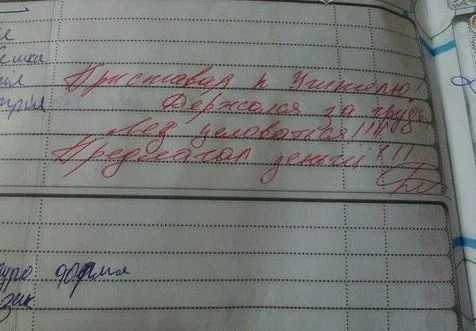 Приставал к Учителю!
Держался за грудь
Лез целоваться!!!!
Предлагал деньги!!!
форма